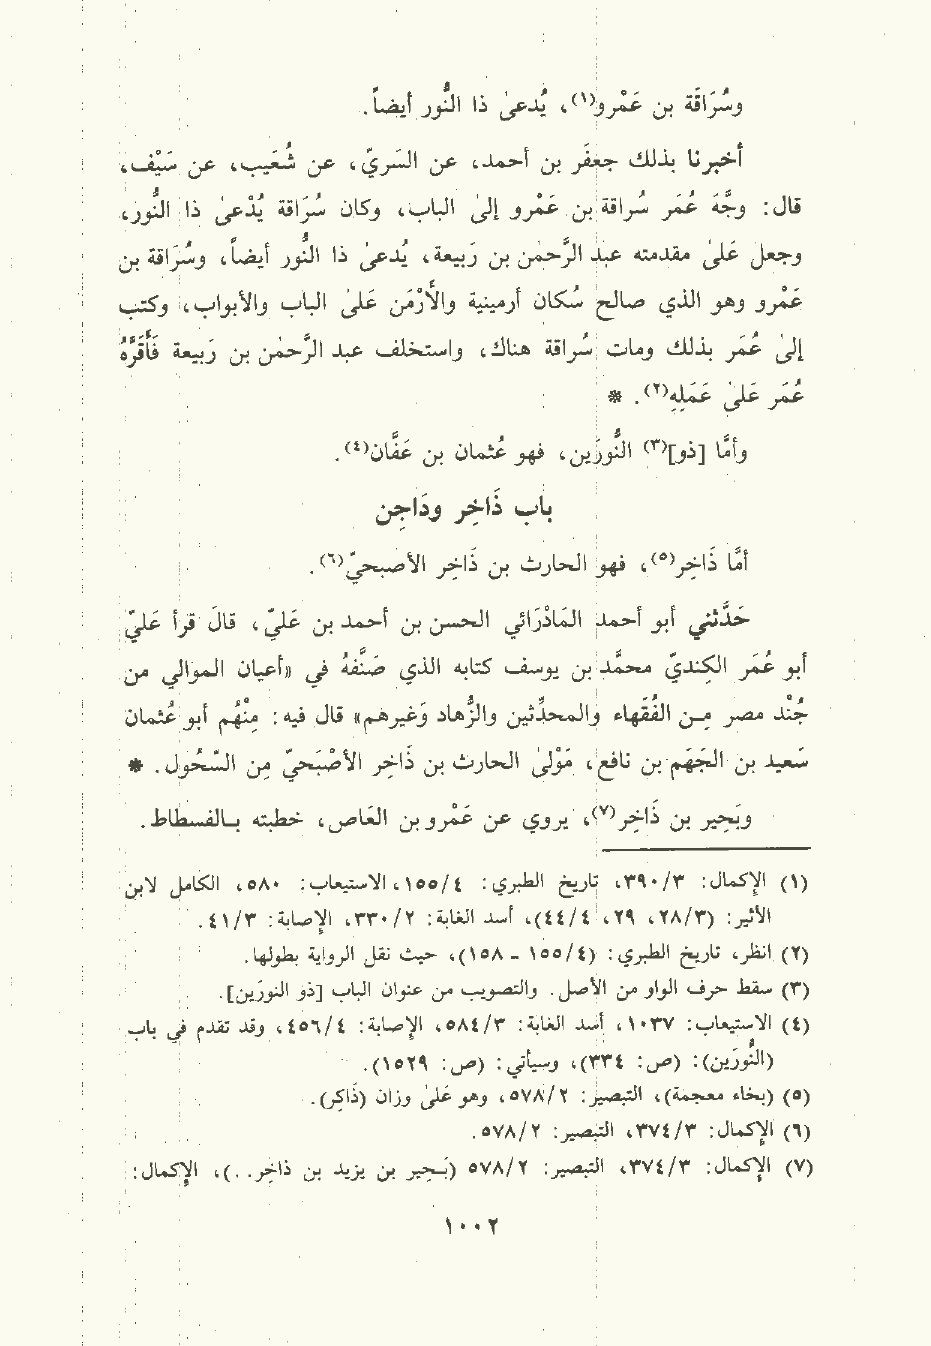 وسُرَاقَة بن عَمْرو(١)، يُدعىٰ ذا النُّور أيضاً.
أخبرنا بذلك جعفَر بن أحمد، عن السَريّ، عن شُعَيب، عن سَيْف،
قال: وجَّهَ عُمَر سُراقة بن عَمْرو إلىٰ الباب، وكان سُرَاقة يُدْعىٰ ذا النُّور،
وجعل عَلىٰ مقدمته عبد الرَّحمٰن بن رَبيعة، يُدعىٰ ذا النُّور أيضاً، وسُرَاقة بن
عَمْرو وهو الذي صالح سُكان أرمينية والأَرْمَن عَلىٰ الباب والأبواب، وكتب
إلىٰ عُمَر بذلك ومات سُراقة هناك، واستخلف عبد الرَّحمٰن بن رَبيعة فَأَقَرَّهُ
عُمَر عَلىٰ عَمَلِهِ(٢). *
وأمَّا [ذو](٣) النُّورَين، فهو عُثمان بن عَفَّان(٤).
باب ذَاخِر ودَاجِن
أمَّا ذَاخِر(٥)، فهو الحارث بن ذَاخِر الأصبحيّ(٦).
حَدَّثني أبو أحمد المَادْرَائي الحسن بن أحمد بن عَليّ، قالَ قرأ عَليّ
أبو عُمَر الكِنديّ محمد بن يوسف كتابه الذي صَنَّفهُ في «أعيان الموالي من
جُنْد مصر مِـن الفُقَهاء والمحدِّثين والزُّهاد وَغيرهم» قال فيه: مِنْهُم أبو عُثمان
سَعيد بن الجَهَم بن نافع، مَوْلىٰ الحارث بن ذَاخِر الأصْبَحيّ مِن السّحُول. *
وبَحِير بن ذَاخِر(٧)، يروي عن عَمْرو بن العَاص، خطبته بـالفسطاط.
(١) الإكمال: ٣/٣٩٠، تاريخ الطبري: ٤/١٥٥، الاستيعاب: ٥٨٠، الكامل لابن
الأثير: (٣/٢٨، ٢٩، ٤/٤٤)، أسد الغابة: ٢/٣٣٠، الإصابة: ٣/٤١.
(٢) انظر، تاريخ الطبري: (٤/١٥٥ - ١٥٨)، حيث نقل الرواية بطولها.
(٣) سقط حرف الواو من الأصل. والتصويب من عنوان الباب [ذو النورَين].
(٤) الاستيعاب: ١٠٣٧، أسد الغابة: ٣/٥٨٤، الإصابة: ٤/٤٥٦، وقد تقدم في باب
(النُّورَين): (ص: ٣٣٤)، وسيأتي: (ص: ١٥٢٩).
(٥) (بخاء معجمة)، التبصير: ٢/٥٧٨، وهو عَلىٰ وزان (ذَاكِر).
(٦) الإكمال: ٣/٣٧٤، التبصير: ٢/٥٧٨.
(٧) الإكمال: ٣/٣٧٤، التبصير: ٢/٥٧٨ (بَـحِير بن يزيد بن ذاخِر..)، الإكمال:
١٠٠٢